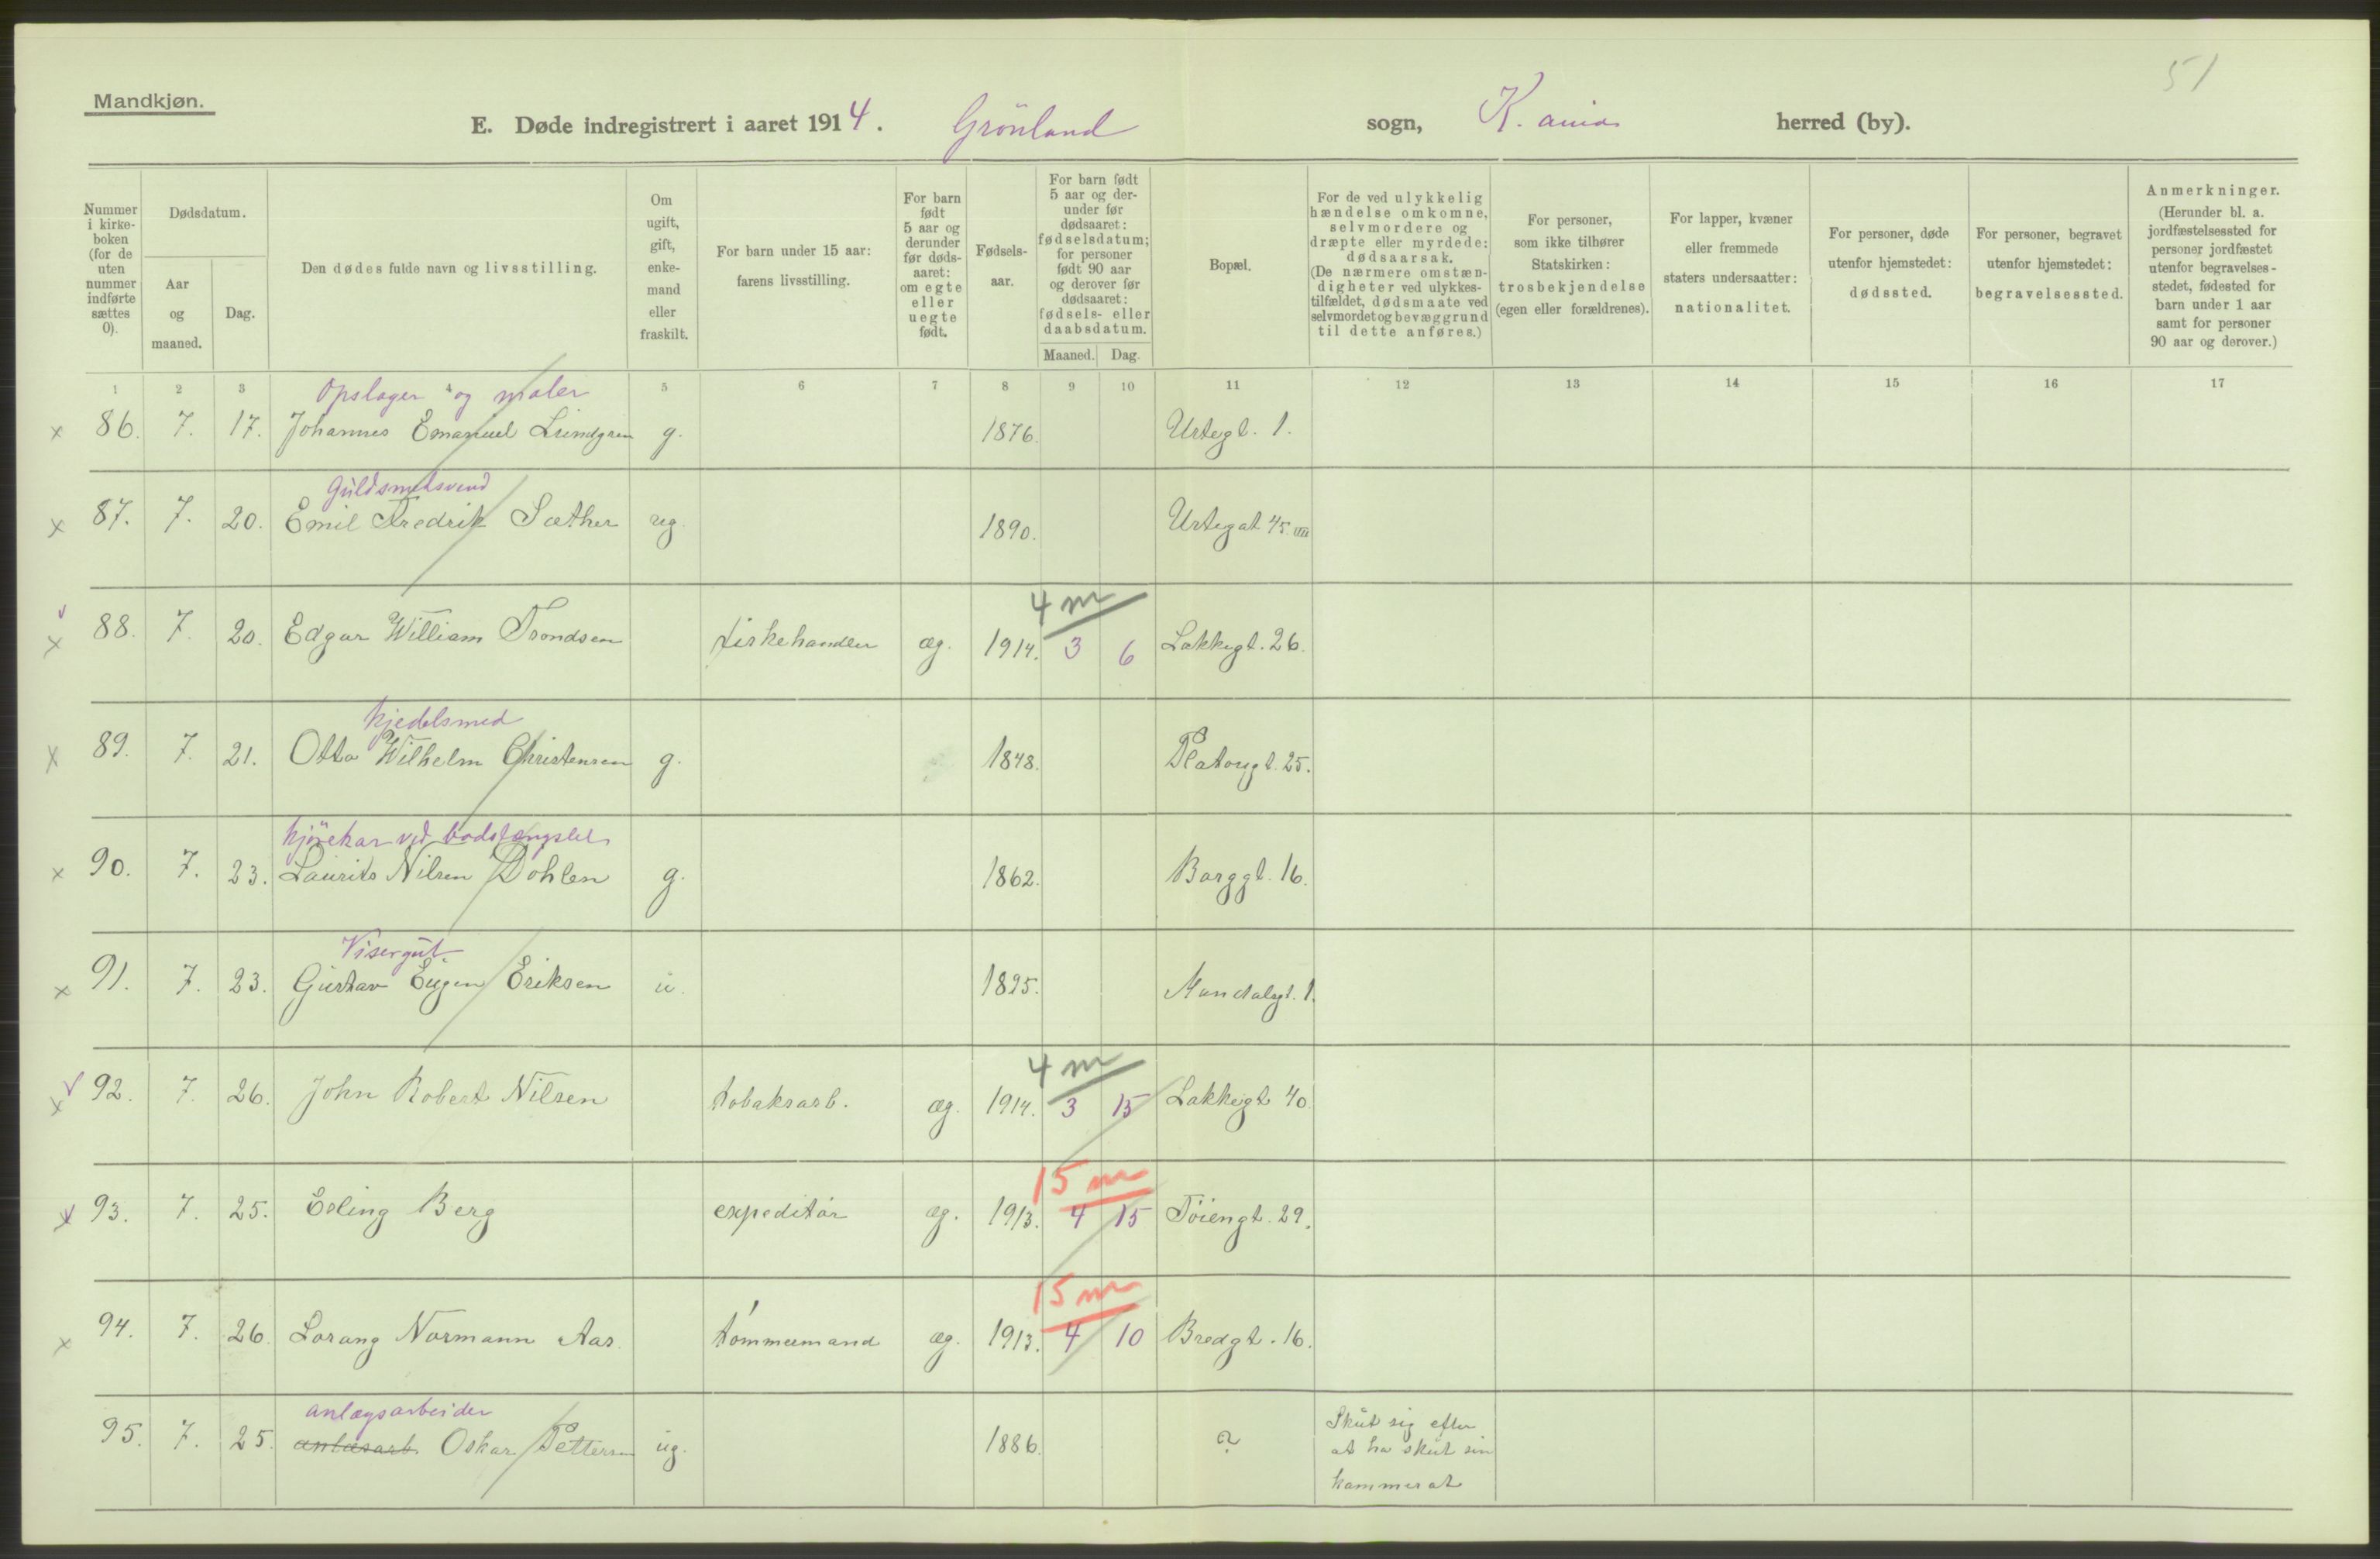 51
Mandkjøn.
E. Døde indregistrert i aaret 1914. Grönland sogn, K.ania herred (by).
Nummer i kirke-boken (for de uten nummer indførte sættes 0).
Dødsdatum.
Aar og maaned.
Dag.
Den dødes fulde navn og livsstilling.
Om ugift, gift, enke-mand eller fraskilt.
For barn under 15 aar: farens livsstilling.
For barn født 5 aar og derunder før døds-aaret: om egte eller uegte født.
Fødsels-aar.
For barn født 5 aar og der-under før dødsaaret: fødselsdatum; for personer født 90 aar og derover før dødsaaret: fødsels- eller daabsdatum.
Maaned. Dag.
Bopæl.
For de ved ulykkelig hændelse omkomne, selvmordere og dræpte eller myrdede: dødsaarsak. (De nærmere omstæn-digheter ved ulykkes-tilfældet, dødsmaate ved selvmordet og bevæggrund til dette anføres.)
For personer, som ikke tilhører Statskirken: trosbekjendelse (egen eller forældrenes).
For lapper, kvæner eller fremmede staters undersaatter: nationalitet.
For personer, døde utenfor hjemstedet: dødssted.
For personer, begravet utenfor hjemstedet: begravelsessted.
Anmerkninger. (Herunder bl. a. jordfæstelsessted for personer jordfæstet utenfor begravelses-stedet, fødested for barn under 1 aar samt for personer 90 aar og derover.)
1 2 3 4 5 6 7 8 9 10 11 12 13 14 15 16 17
Opslager og maler
x 86. 7. 17. Johannes Emanuel Lundgren g. 1876. Urtegt. 1.
Guldsmedsvend
x 87. 7. 20. Emil Fredrik Sæther ug. 1890. Urtegat 45. IIII
4 m
x 88. 7. 20. Edgar William Trondsen fiskehandler æg. 1914. 3 6 Lakkegt. 26.
Kjedelsmed
x 89. 7. 21. Otto Wilhelm Christensen g. 1848. Platougt. 25.
kjörekar ved bodsfængslet
x 90. 7. 23. Laurits Nilsen Dohlen g. 1862. Borggt. 16.
Visergut
x 91. 7. 23. Gustav Eugen Eriksen u. 1895. Mandalsgt. 1.
4 m
x 92. 7. 26. John Robert Nilsen tobaksarb. æg. 1914. 3 15 Lakkegt 40
15 m
x 93. 7. 25. Erling Berg expeditör æg. 1913. 4 15 Töiengt. 29.
15 m
x 94. 7. 26. Lorang Normann Aas. tömmermand æg. 1913. 4 10 Bredgt. 16.
anlægsarbeider
95. 7. 25. anlæsarb. Oskar Pettersen ug. 1886. ? Skut sig efter
at ha skut sin
kammerat